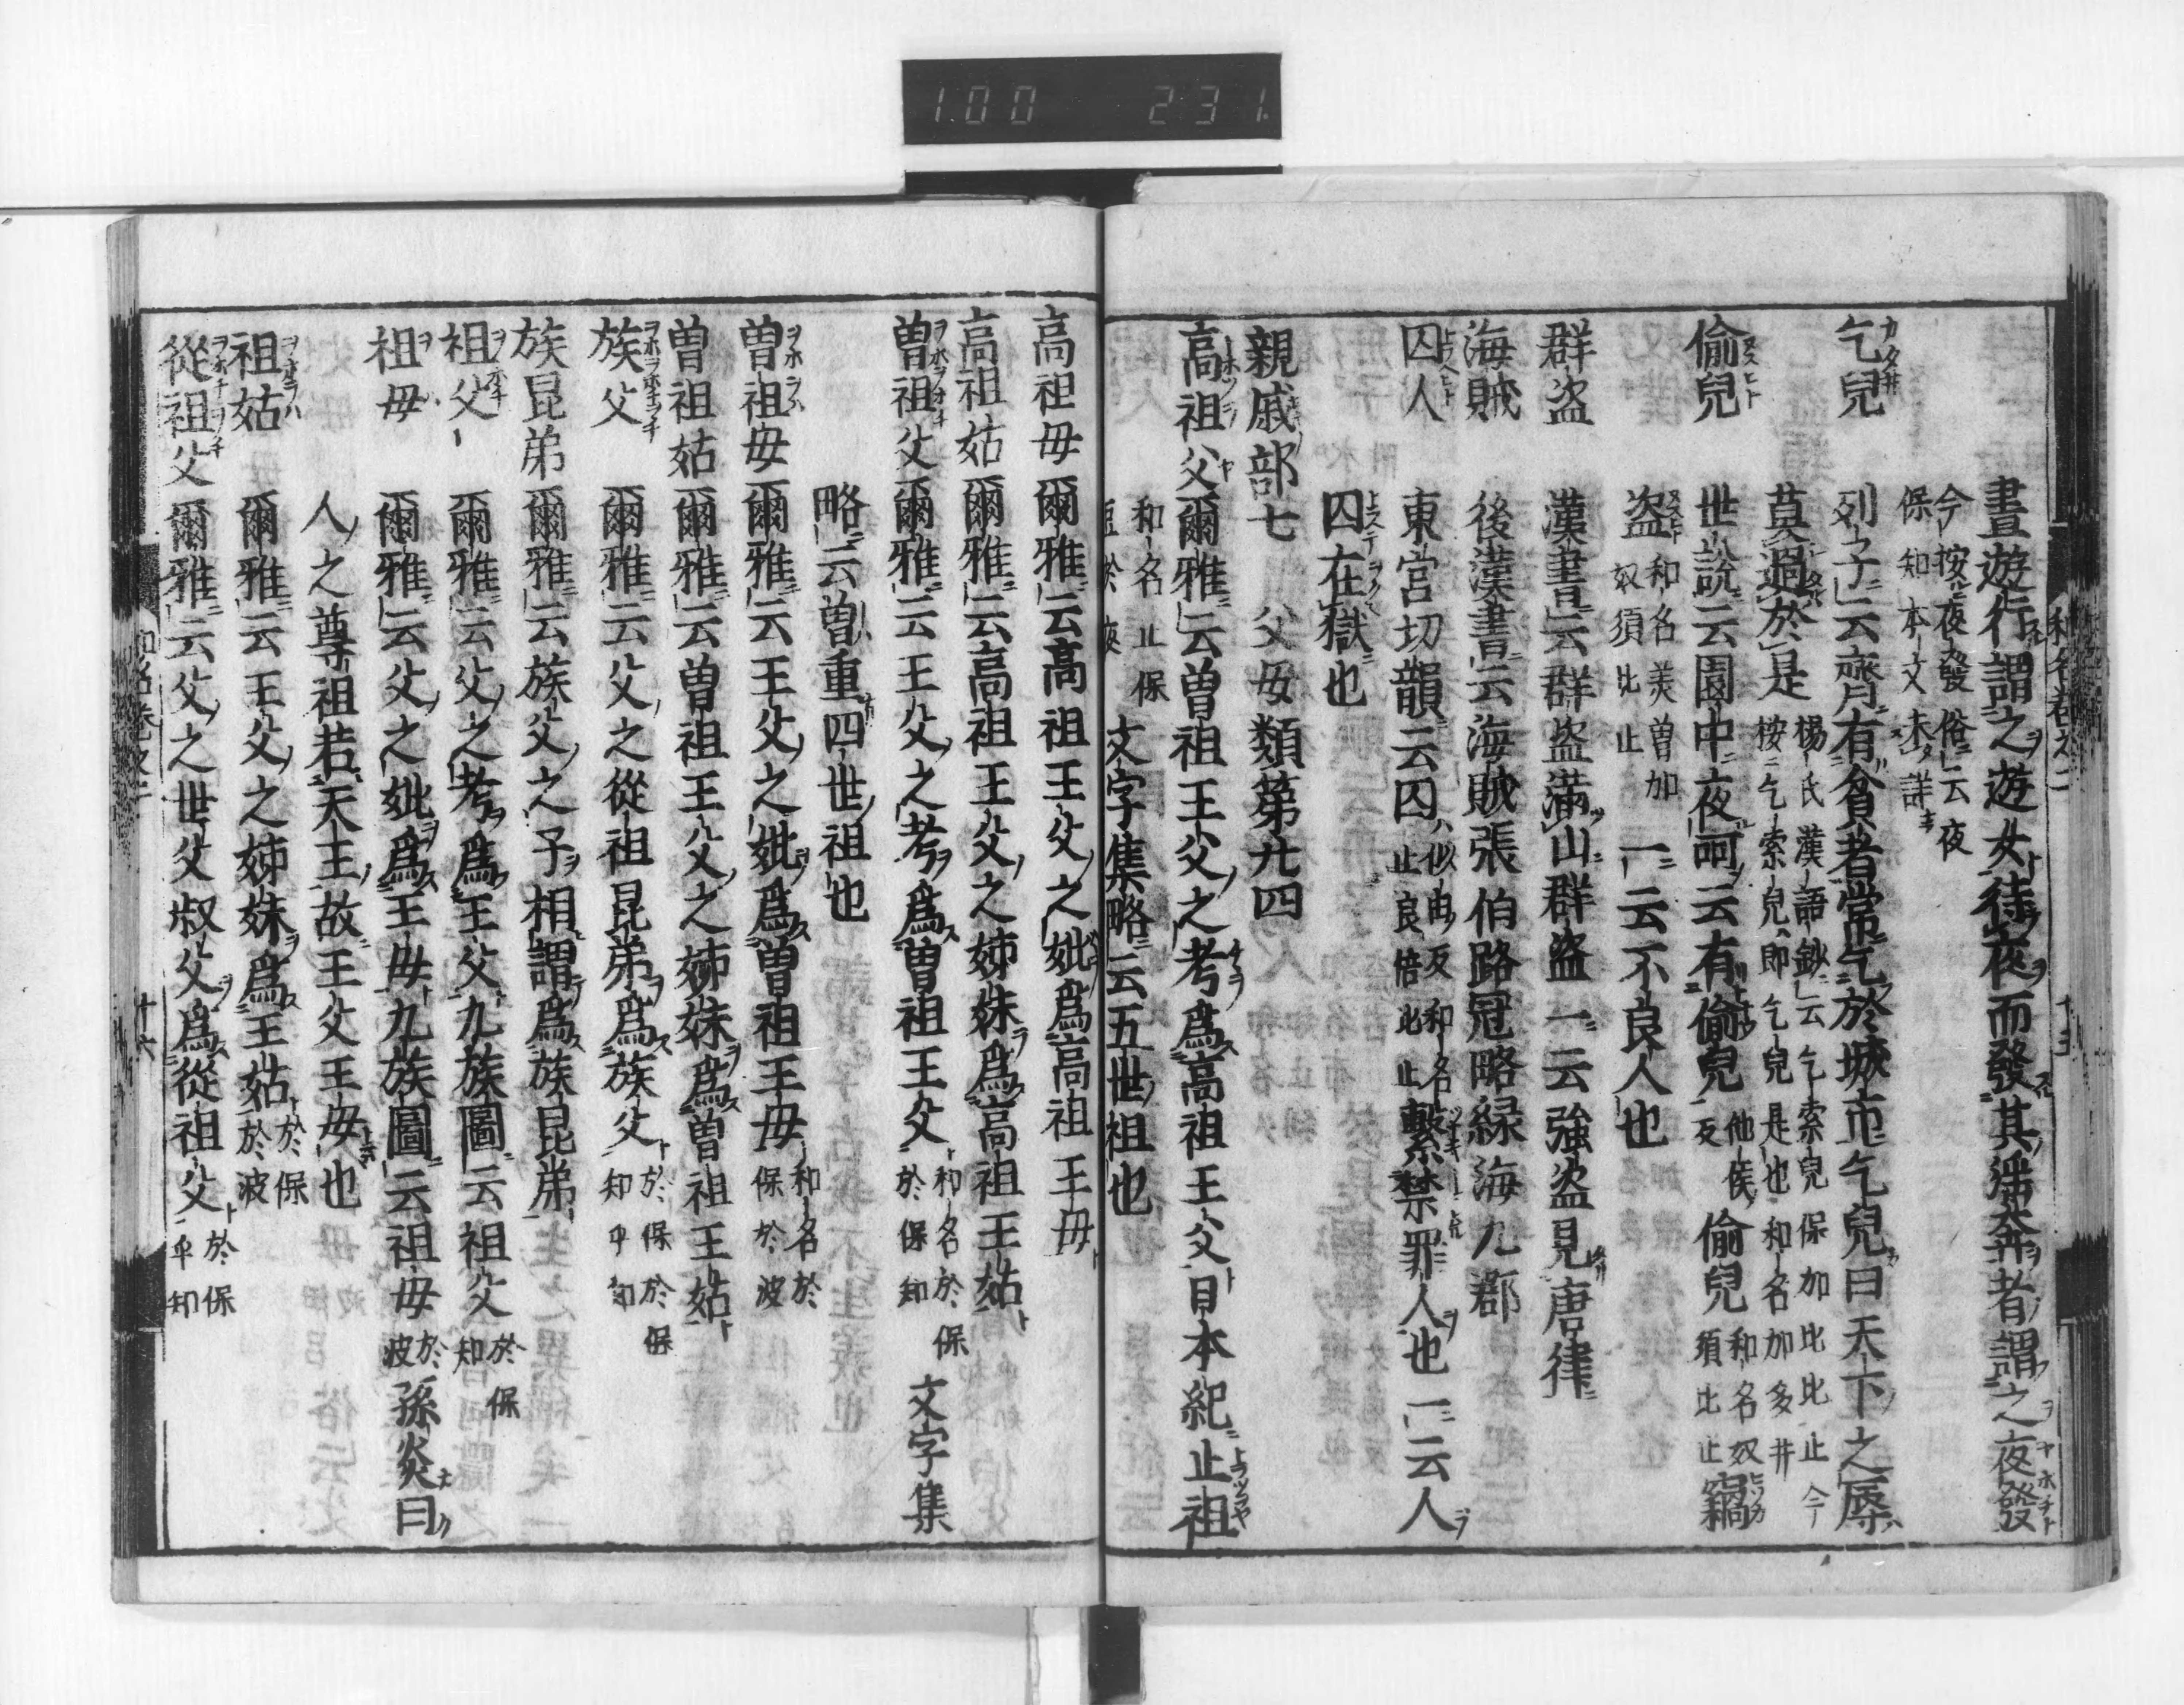 100 231
晝遊行謂之遊女待夜而發其淫奔者謂之夜發
今按夜發俗云夜
保知本文未詳
乞兒 列子云齊有貧者常乞於城市乞兒曰天下之辱
莫過於是 楊氏漢語鈔云乞索兒保加比比止今
按乞索兒即乞兒是也和名加多井
偷兒 世說云園中夜呵云有偷兒 他侯反 偷兒 和名奴須比止 竊
盜 和名美曾加奴須比止 一云不良人也
群盗 漢書云群盗滿山群盗一云強盗見唐律
海賊 後漢書云海賊張伯路冠略緑海九郡
囚人 東宮切韻云囚 似由反和名止良倍比止 繫禁罪人也一云人
囚在獄也
親戚部七 父母類第九四
高祖父 爾雅云曽祖王父之考爲高祖王父日本紀止祖
和名止保 文字集略云五世祖也
高祖母 爾雅云高祖王父之妣爲高祖王母
高祖姑 爾雅云高祖王父之姉妹爲高祖王姑
曽祖父 爾雅云王父之考爲曽祖王父 和名於保於保知 文字集
略云曽重四世祖也
曽祖母 爾雅云王父之妣爲曽祖王母 和名於保於波
曽祖姑 爾雅云曽祖王父之姉妹爲曽祖王姑
族父 爾雅云父之從祖昆弟爲族父 於保於保知乎知
族昆弟 爾雅云族父之子相謂爲族昆弟
祖父 爾雅云父之考爲王父九族圖云祖父 於保知
祖母 爾雅云父之妣爲王母九族圖云祖母 於波 孫炎曰
人之尊祖若天王故王父王母也
祖姑 爾雅云王父之姉妹爲王姑 於保於波
從祖父 爾雅云父之世父叔父爲從祖父 於保乎知
十六